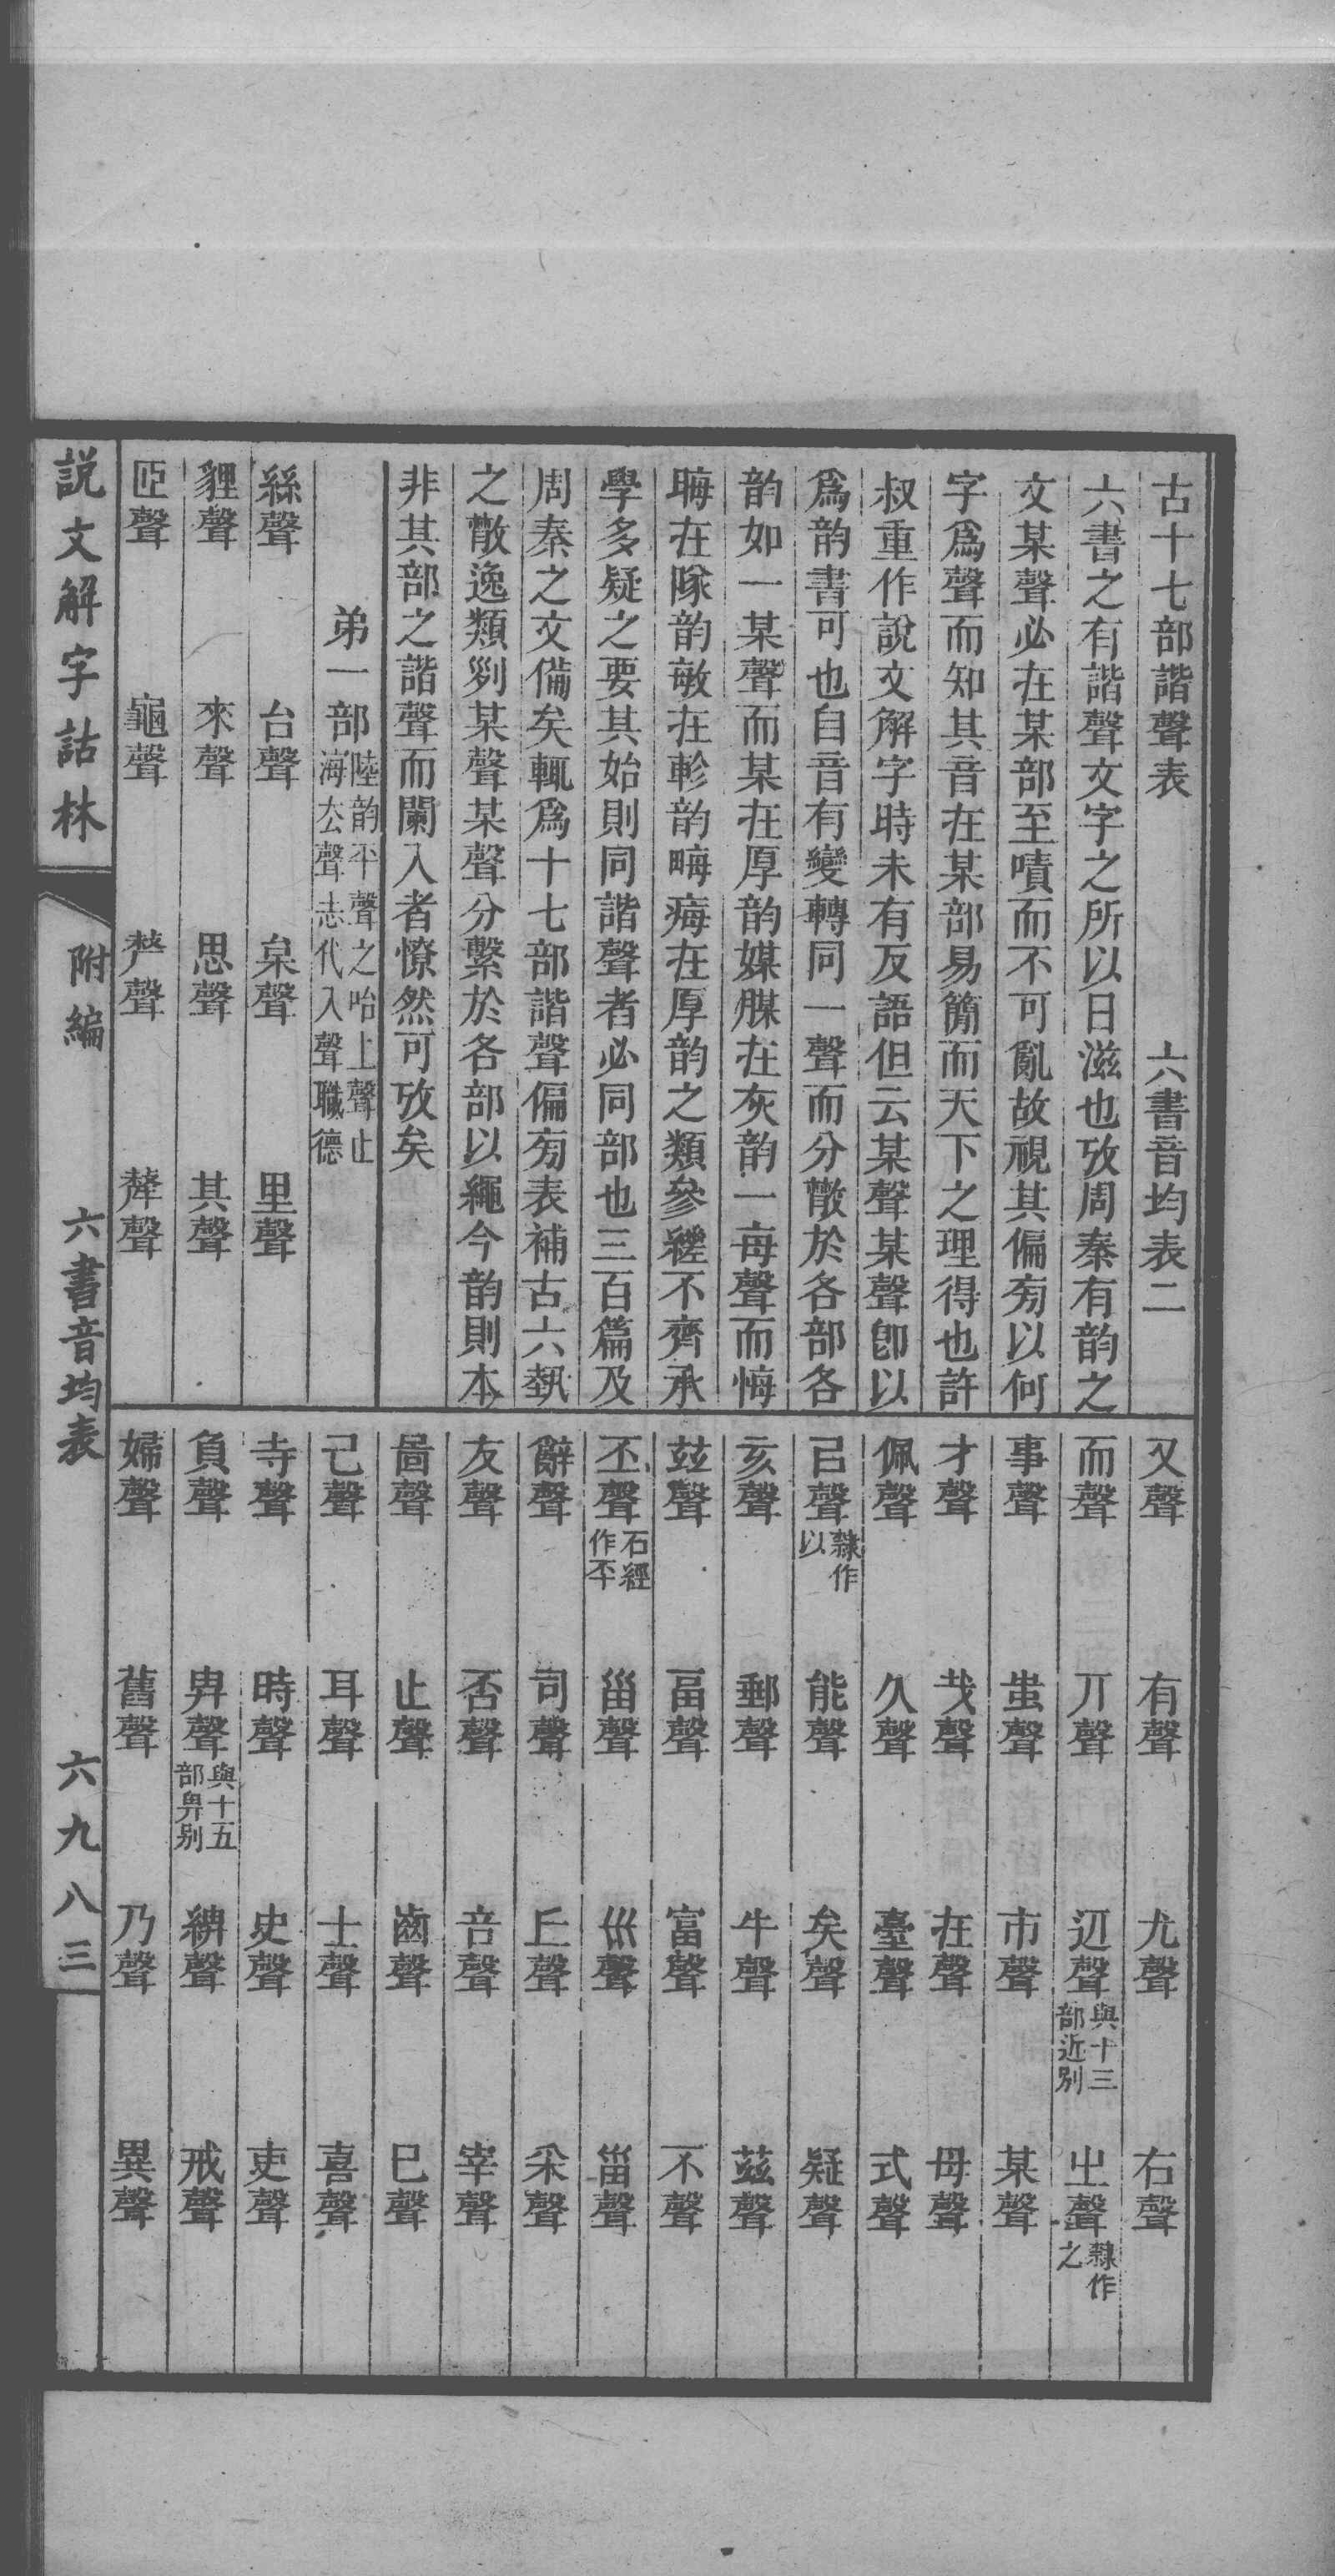 古十七部諧聲表　六書音均表二
六書之有諧聲文字之所以日滋也攷周秦有韵之
文某聲必在某部至嘖而不可亂故視其偏㫄以何
字爲聲而知其音在某部易簡而天下之理得也許
叔重作說文解字時未有反語但云某聲某聲卽以
爲韵書可也自音有變轉同一聲而分㪚於各部各
韵如一某聲而某在厚韵媒腜在灰韵一每聲而悔
晦在隊韵敏在軫韵晦痗在厚韵之類參縒不齊承
學多疑之要其始則同諧聲者必同部也三百篇及
周秦之文備矣輒爲十七部諧聲偏㫄表補古六埶
之㪚逸類𠛱某聲某聲分繫於各部以繩今韵則本
非其部之諧聲而闌入者憭然可攷矣
弟一部 陸韵平聲之咍上聲止海去聲志代入聲職德
絲聲　台聲　枲聲　里聲
貍聲　來聲　思聲　其聲
𦣞聲　龜聲　𠩺聲　𠭰聲
又聲　有聲　尤聲　右聲
而聲　丌聲　䢋聲 與十三部近别　㞢聲 隸作之
事聲　蚩聲　市聲　某聲
才聲　𢦏聲　在聲　毋聲
佩聲　久聲　臺聲　式聲
㠯聲 隸作以　能聲　矣聲　疑聲
亥聲　郵聲　牛聲　茲聲
茲聲　畐聲　富聲　不聲
丕聲 石經作㔻　甾聲　𡿧聲　甾聲
辭聲　司聲　丘聲　采聲
友聲　否聲　音聲　宰聲
啚聲　止聲　齒聲　巳聲
己聲　耳聲　士聲　喜聲
寺聲　時聲　史聲　吏聲
負聲　𢌿聲 與十五部畀别　綥聲　戒聲
婦聲　舊聲　乃聲　異聲
説文解字詁林　附編　六書音均表　六九八三